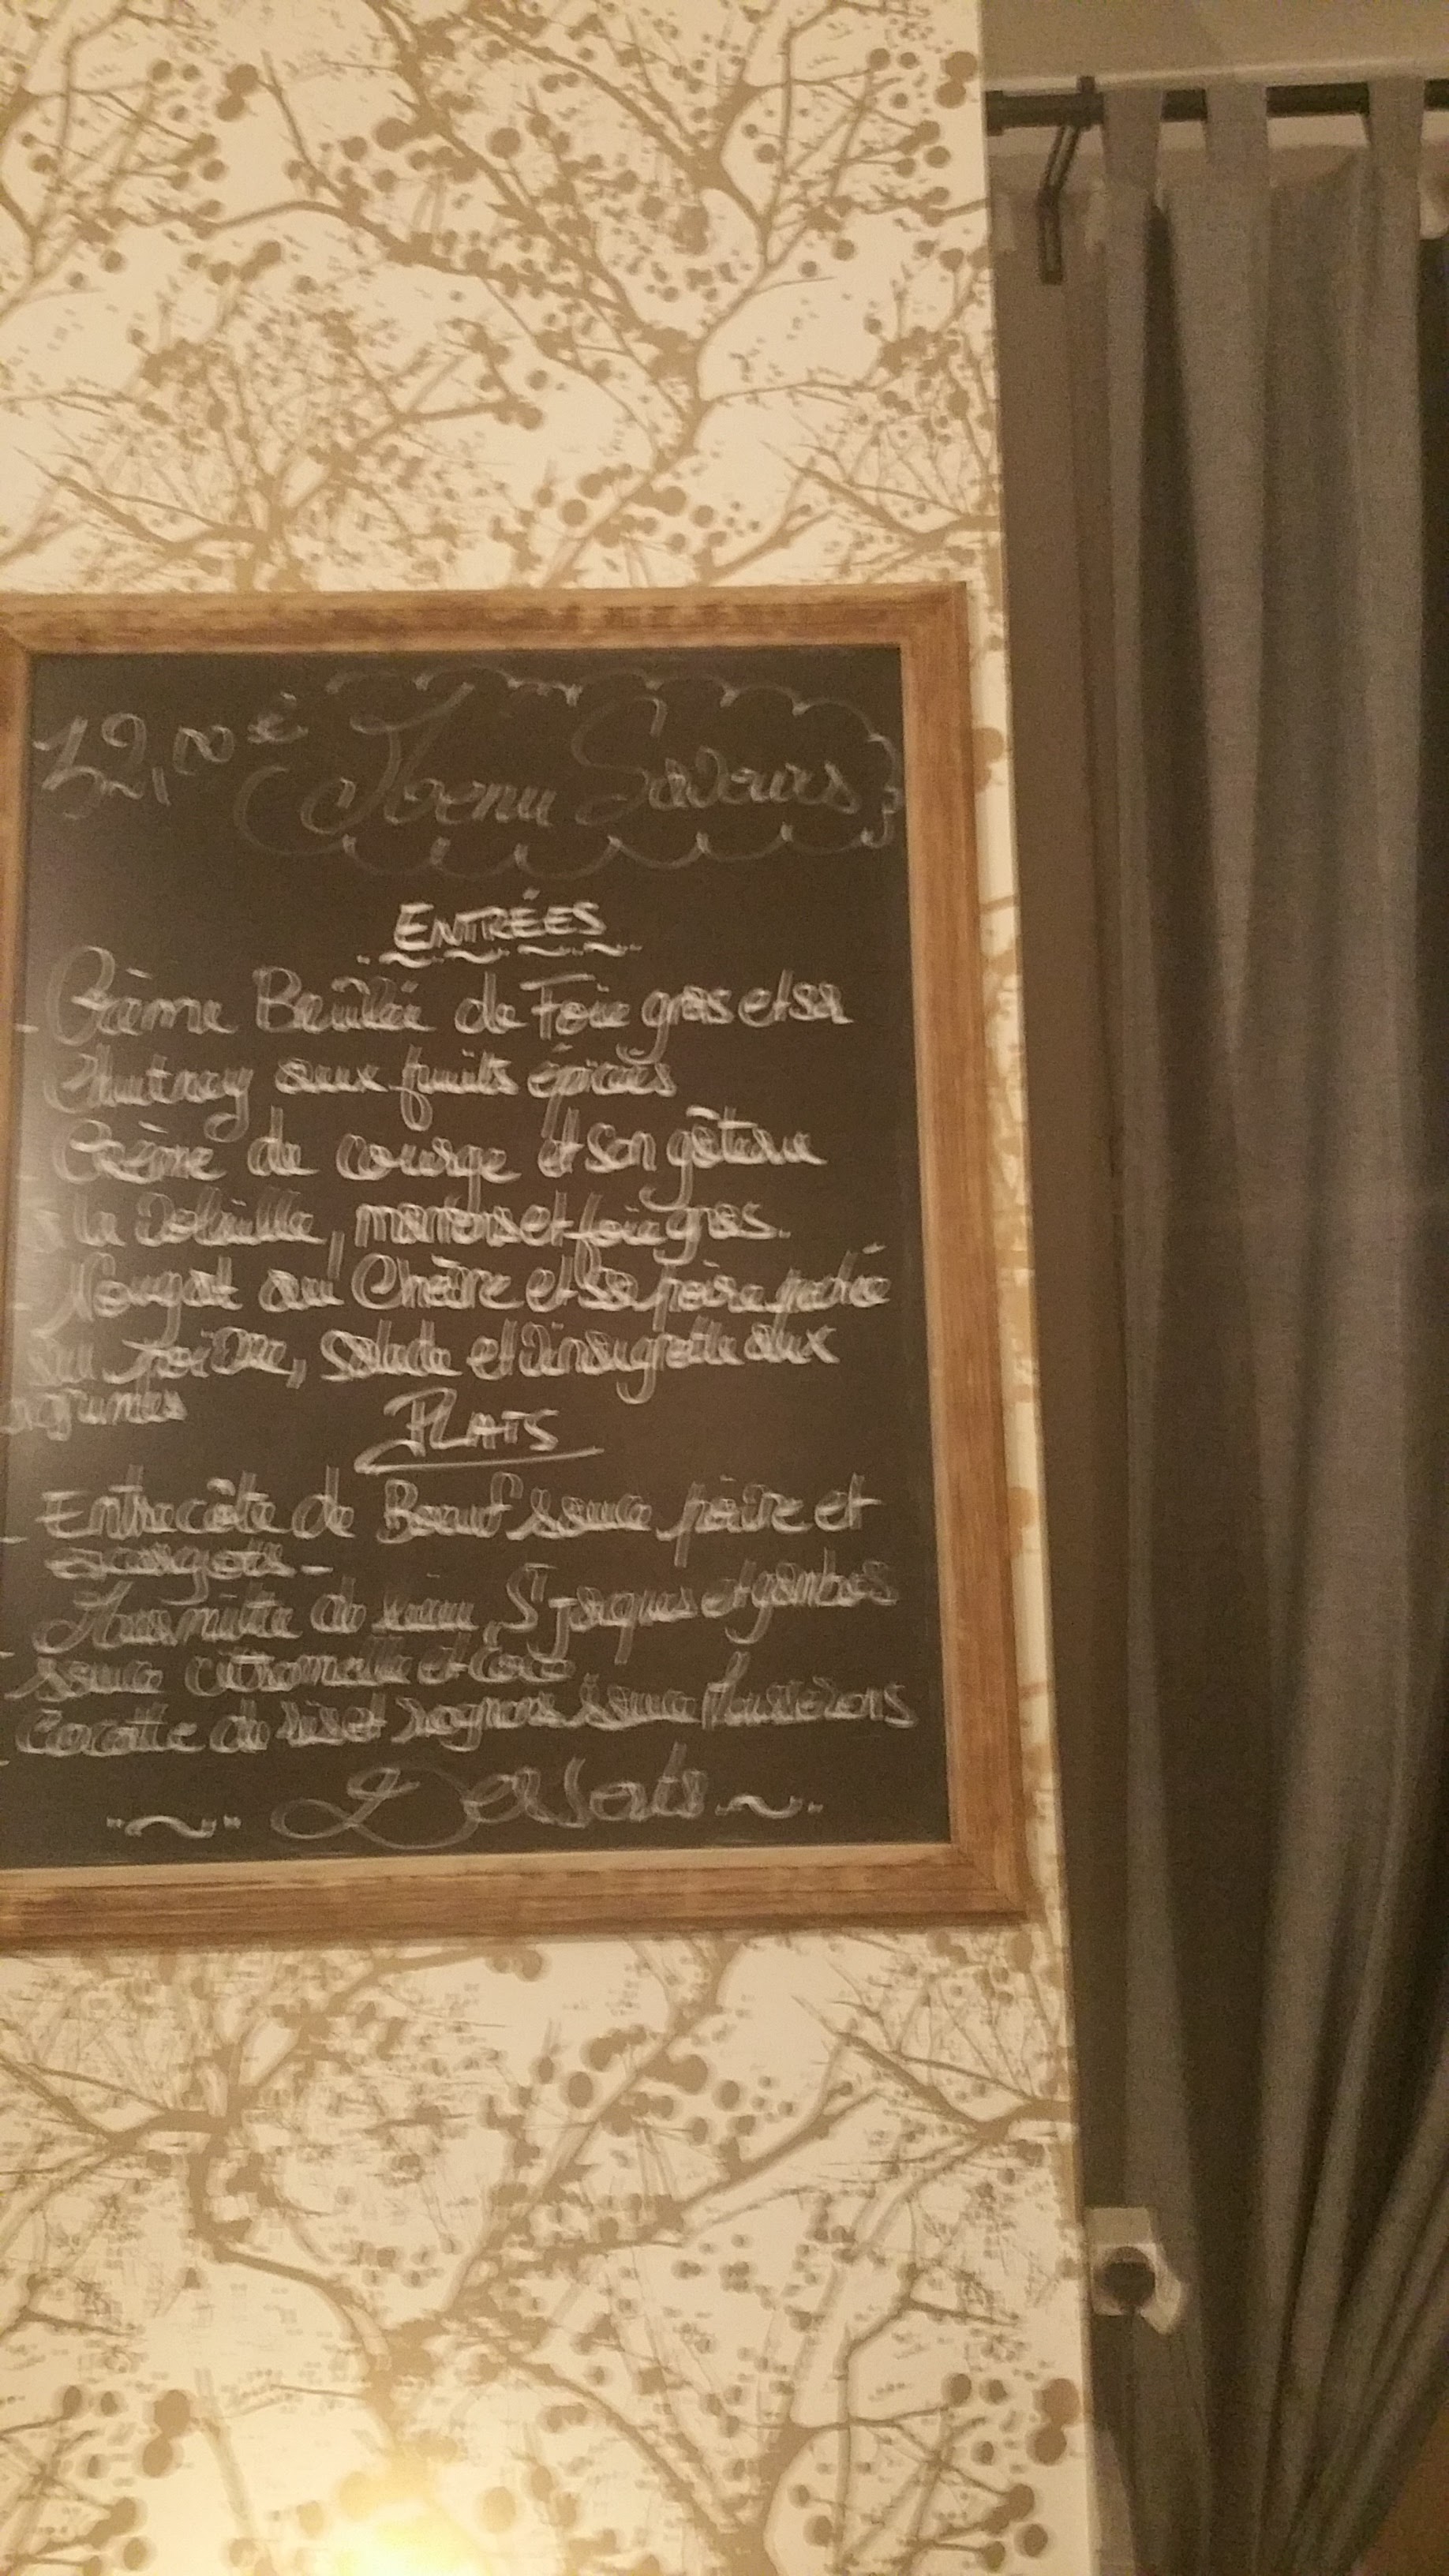 Menu Saveurs
ENTRÉES
- Crème Brûlée de Foie gras et sa
Chutney aux fruits épicés
Crème de courge et son gâteau
la Volaille, marrons et foie gras.
- Nougat au Chèvre et sa poire pochée
au poivre, salade et vinaigrette aux
agrumes
PLATS
- Entrecôte de Boeuf sauce poivre et
escargots -
Marmitte de lieu, St Jacques et gambas
- sauce citronnelle et Coco
- Cocotte de ris et rognons sauce Mousserons
Desserts